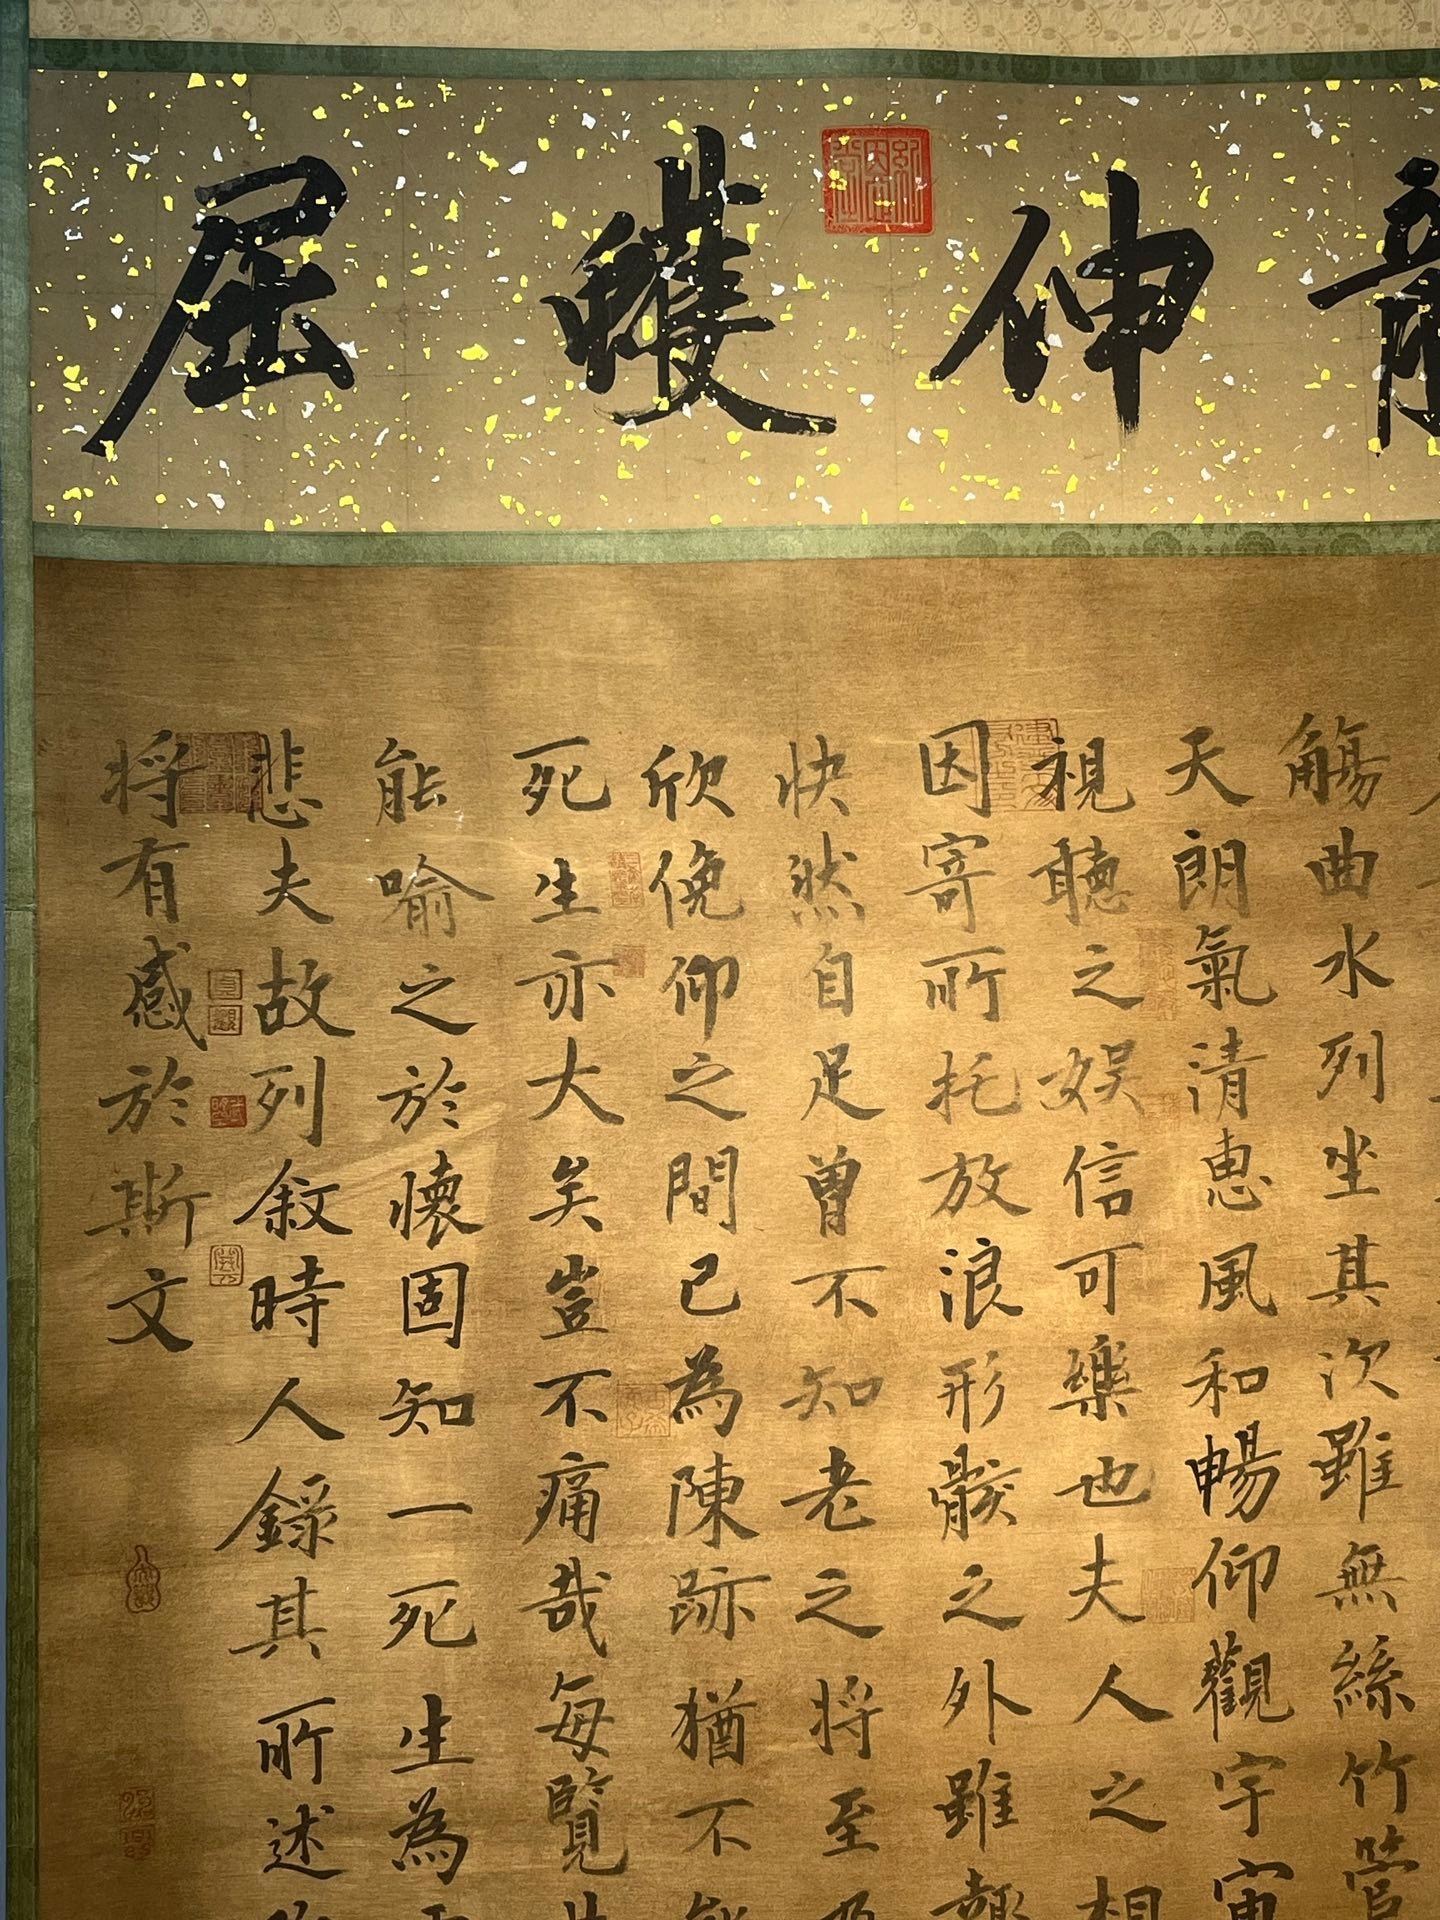 龍伸蠖屈
觴曲水列坐其次雖無絲竹管
天朗氣清惠風和暢仰觀宇宙
視聽之娛信可樂也夫人之相
因寄所托放浪形骸之外雖趣
快然自足曾不知老之將至
欣俛仰之間已為陳跡猶不能
死生亦大矣豈不痛哉每覽
能喻之於懷固知一死生為
悲夫故列敘時人錄其所述
將有感於斯文
貞觀